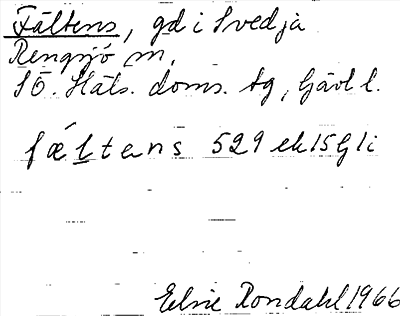 Fältens, gd i Svedja
Rengsjö sn,
SÖ. Häls. doms. tg, Gävl l.
fǽltens 529 ek 15 G 1 i
Elsie Rondahl 1966